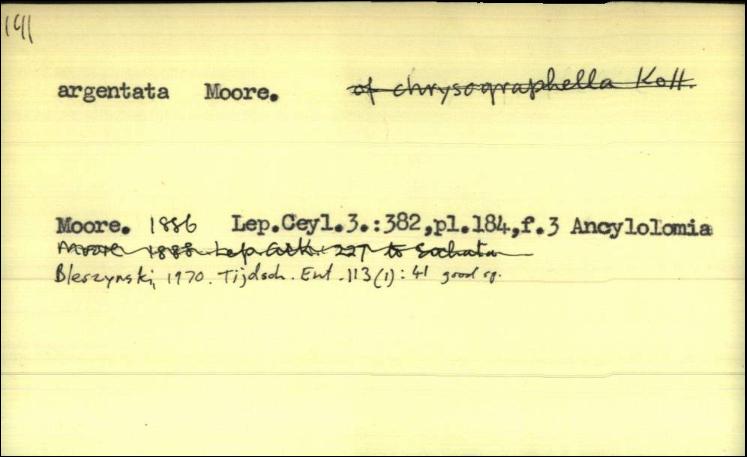 argentata Moore. of chrysographella Koll.
Moore. 1886 Lep.Ceyl.3.:382,pl.184,f.3 Ancylolomia
Moore 1888 Lep. 227 to
Bleszynski, 1970. Tijdsch. Ent. 113(1): 41 good sp.